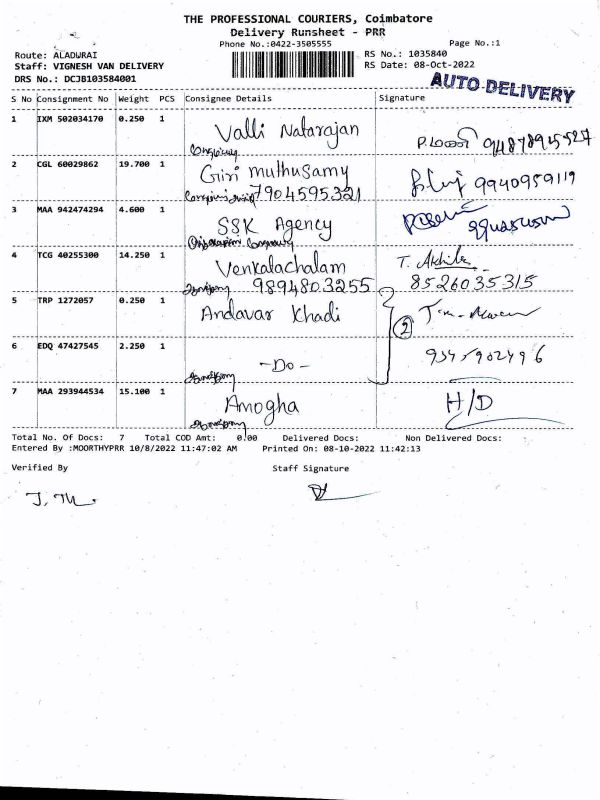 THE PROFESSIONAL COURIERS, Coimbatore
Delivery Runsheet - PRR
Phone No.:0422-3505555 Page No.:1
Route: ALADURAI RS No.: 1035840
Staff: VIGNESH VAN DELIVERY RS Date: 08-Oct-2022
DRS No.: DCJB103584001 AUTO DELIVERY
S No Consignment No Weight PCS Consignee Details Signature
1 IXM 502034170 0.250 1 Valli Natarajan
2 CGL 60029862 19.700 1 Giri muthusamy 9940959119
7904595321
3 MAA 942474294 4.600 1 SSK Agency
4 TCG 40255300 14.250 1 Venkalachalam T. Akhila
9894803255 8526035315
5 TRP 1272057 0.250 1 Andavar Khadi
2
6 EDQ 47427545 2.250 1 -Do-
7 MAA 293944534 15.100 1 Amogha H/D
Total No. Of Docs: 7 Total COD Amt: 0.00 Delivered Docs: Non Delivered Docs:
Entered By :MOORTHYPRR 10/8/2022 11:47:02 AM Printed On: 08-10-2022 11:42:13
Verified By Staff Signature